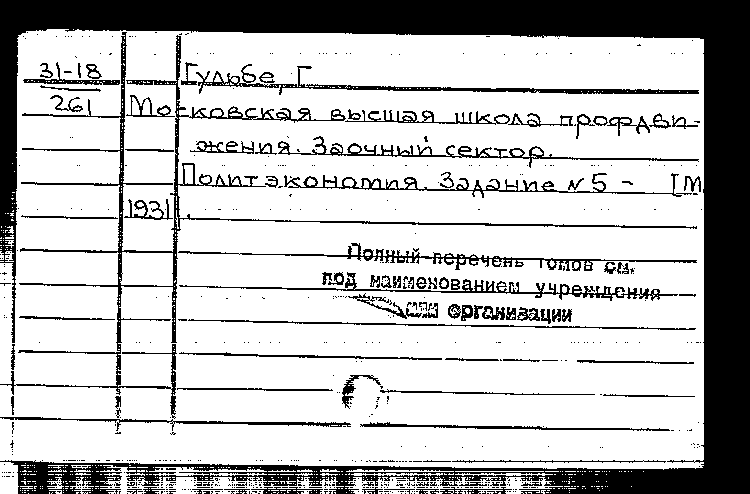 31-18 Гульбе, Г
261 Московская высшая школа профдви-
жения. Заочный сектор.
Политэкономия. Задание №5 - [М
1931].
Полный перечень томов см.
под наименованием учреждения
или организации